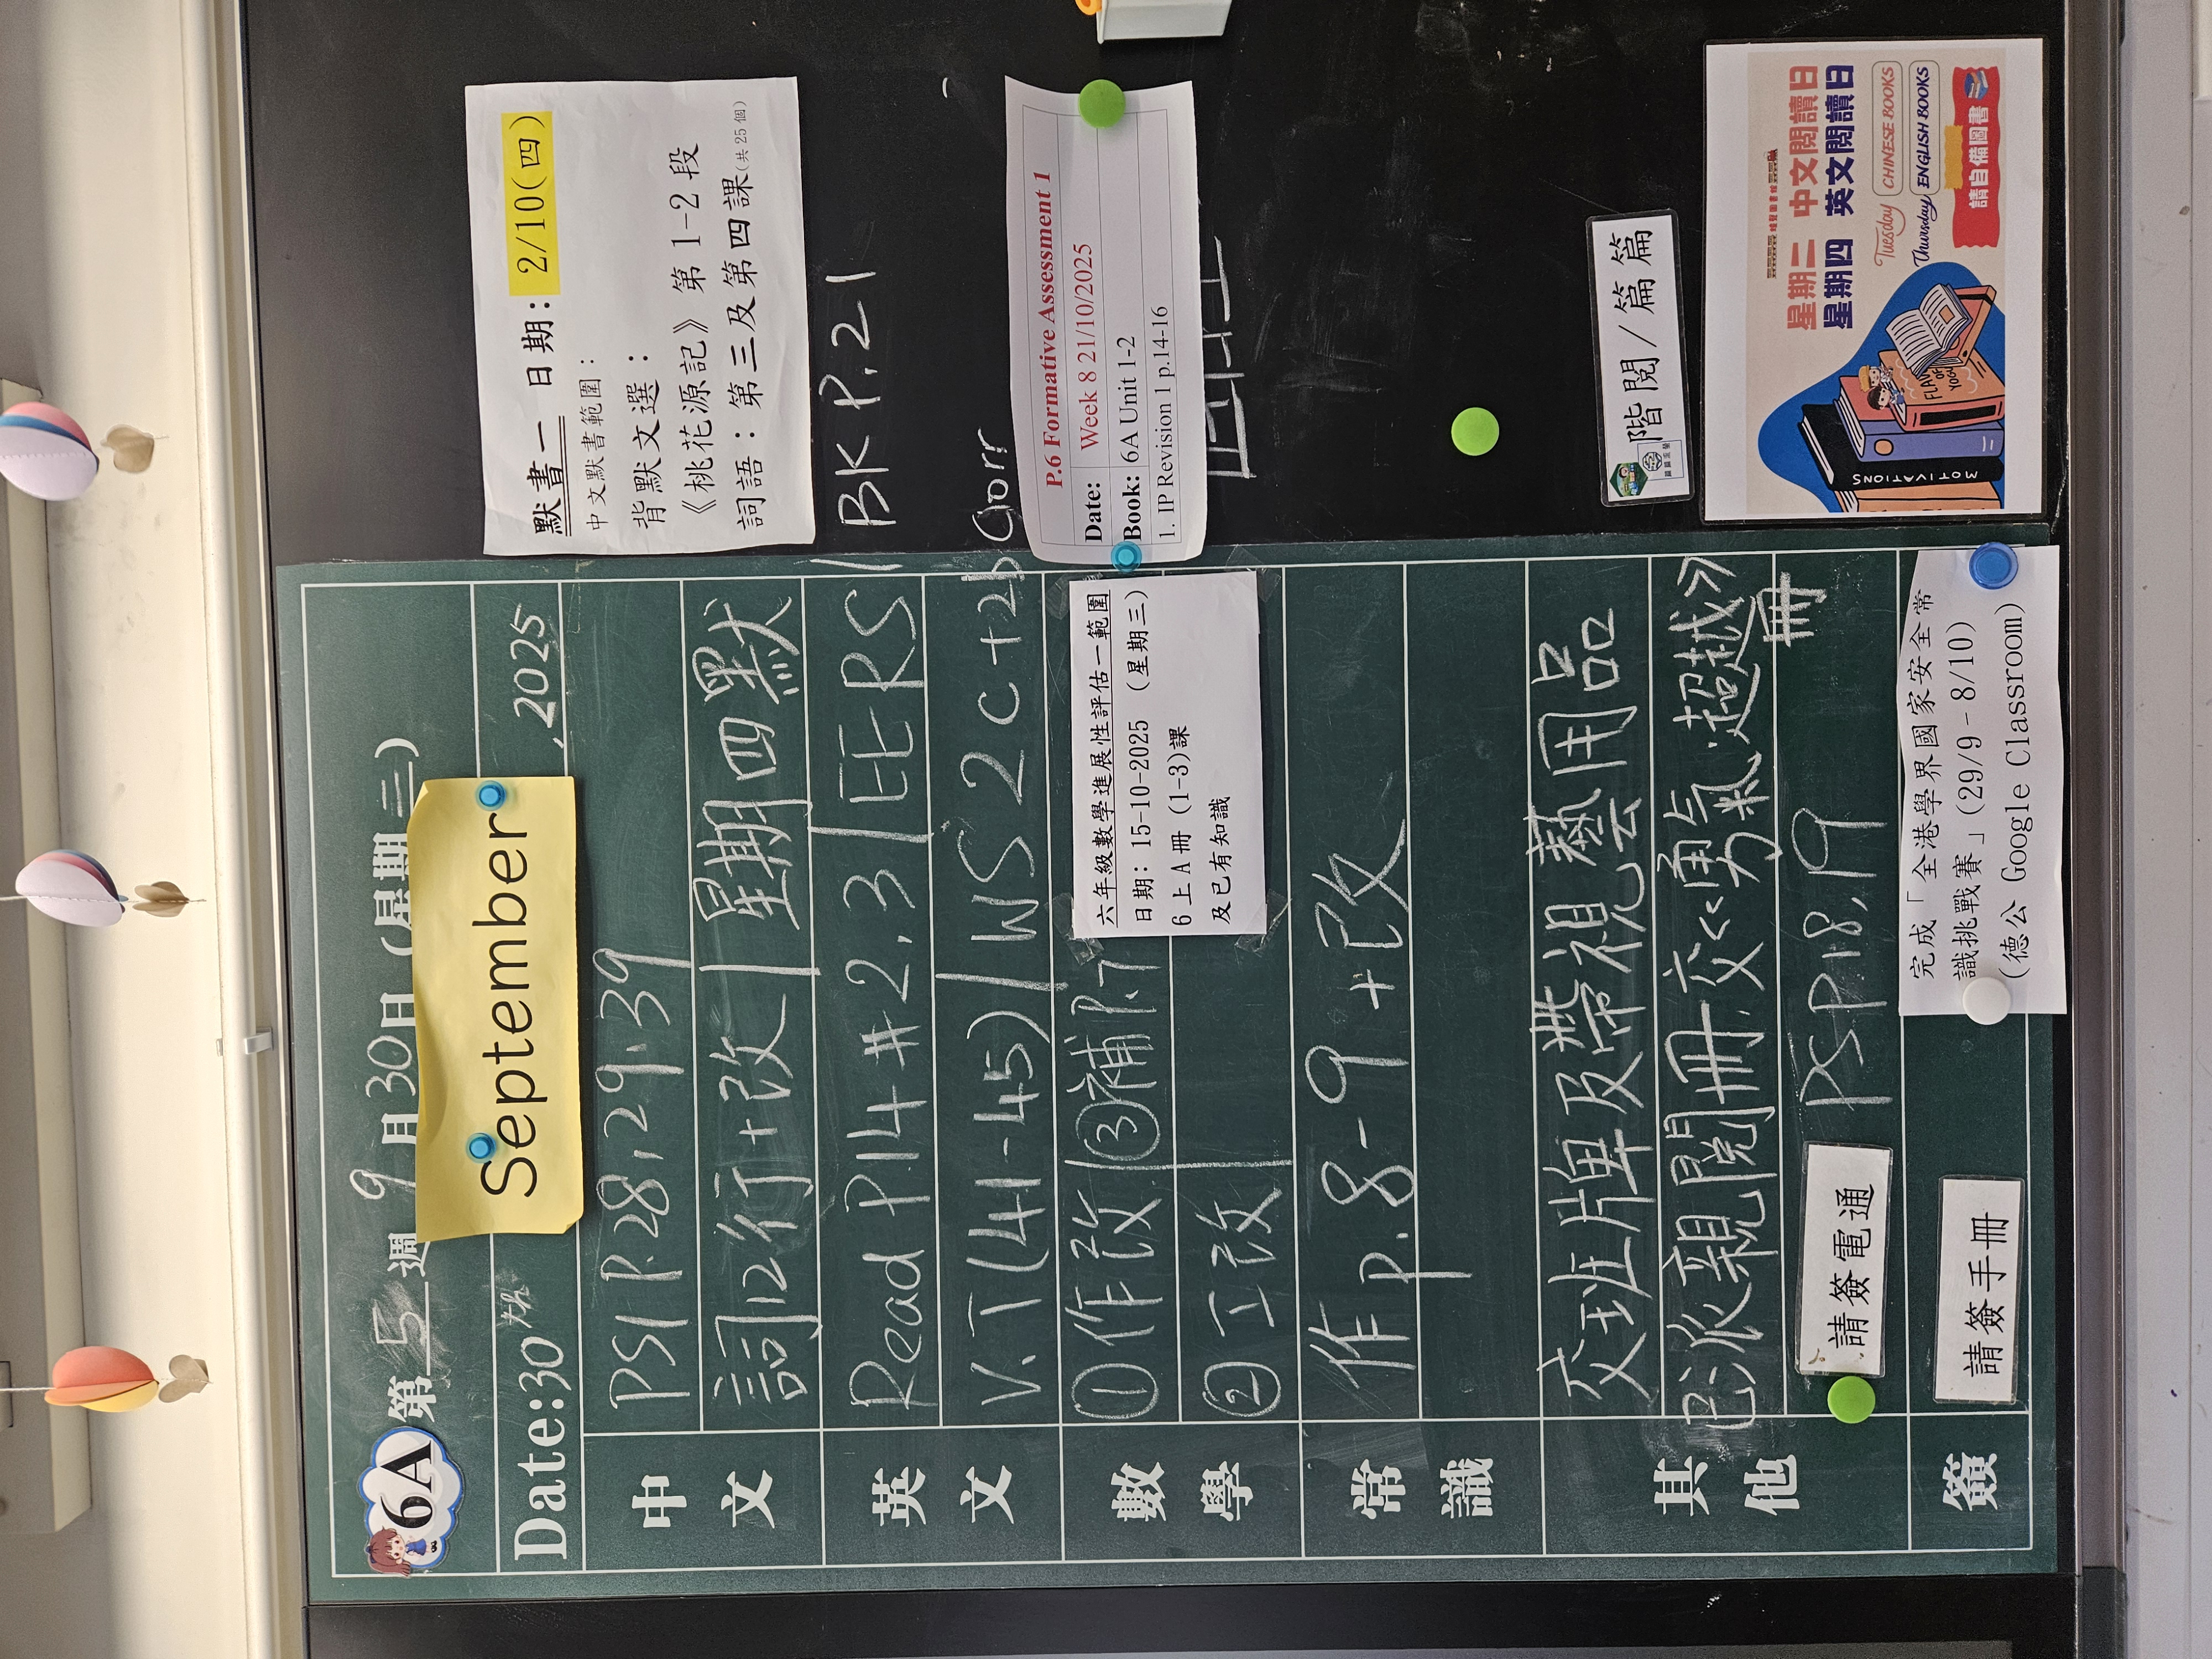 6A 第 5 週 9 月 30 日 (星期 二)
Date: 30th September, 2025
中文
PS1 P.28, 29, 39
詞12行+改 | 星期四默
英文
Read P14 # 2, 3 | EE RS | BK P.21
V.T (41-45) | WS 2C+2b Corr
數學
①作改 | ③補P.7
②工改
常識
作 P.8-9 +改
其他
交班牌及帶視藝用品
已派親閱冊.交<<勇氣.超越>>冊
請簽電通
PS P.18, 19
簽
請簽手冊
完成「全港學界國家安全常
識挑戰賽」(29/9 - 8/10)
(德公 Google Classroom)
六年級數學進展性評估一範圍
日期: 15-10-2025 (星期三)
6上A冊 (1-3)課
及已有知識
默書一 日期: 2/10(四)
中文默書範圍:
背默文選:
《桃花源記》第 1-2 段
詞語:第三及第四課(共25個)
P.6 Formative Assessment 1
Date: Week 8 21/10/2025
Book: 6A Unit 1-2
1. IP Revision 1 p.14-16
階閱/篇篇
星期二 中文閱讀日
星期四 英文閱讀日
Tuesday CHINESE BOOKS
Thursday ENGLISH BOOKS
請自備圖書
MOTIVATIONS